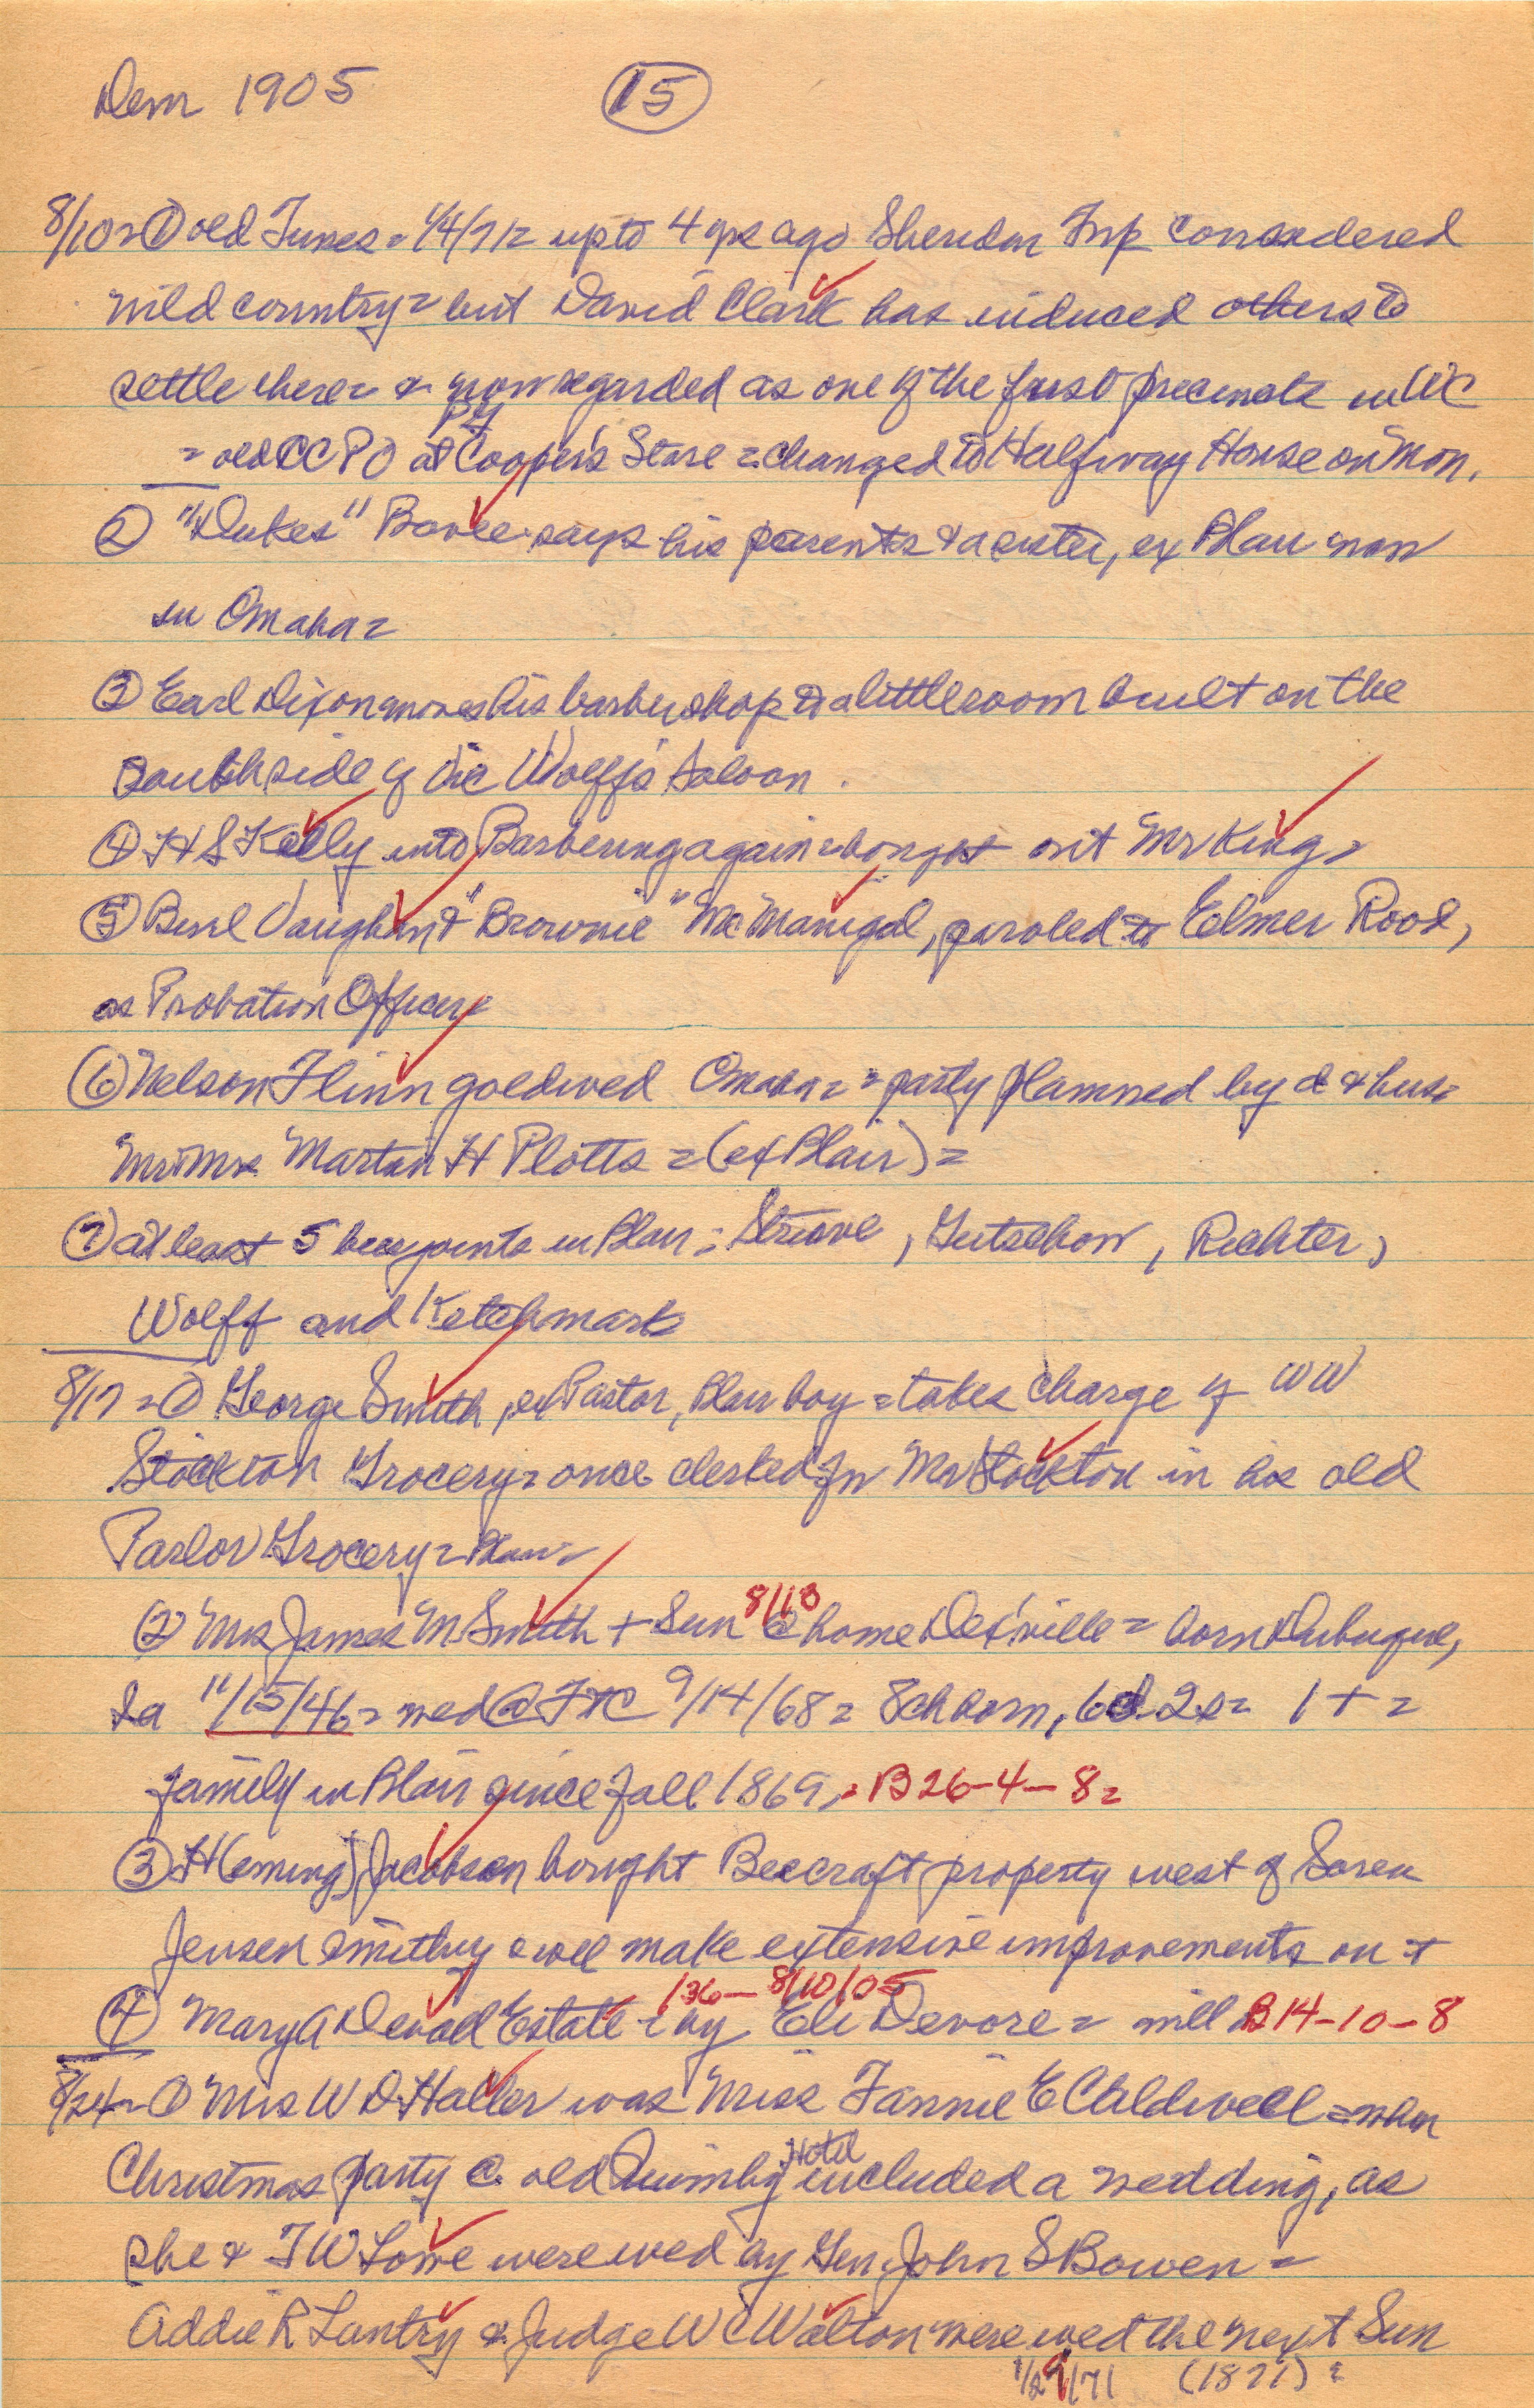 Dem 1905 15
8/10 = ① old Times = 1/4/71 = up to 4 yrs ago Sheridan Twp considered
wild country = but David Clark has induced others to
settle there = & now regarded as one of the first precincts in WC
= old CC PO at Cooper's Store = changed to Halfway House on Mon.
② "Dukes" Bovee says his parents & a sister, ex Blair now
in Omaha =
③ Earl Dixon moves his barber shop to a little room built on the
south side of Vic Wolff's Saloon.
④ H S Kelly into Barbering again = bought out Mr King =
⑤ Burl Vaughn & "Brownie" McManigal, paroled to Elmer Rood,
as Probation Officer =
⑥ Nelson Flinn goldwed Omaha = = party planned by d & hus =
Mr Mrs Martin H Plotts = (ex Blair) =
⑦ at least 5 beer joints in Blair: Struve, Gutschow, Richter,
Wolff and Ketchmark
8/17 = ① George Smith, ex Pastor, Blair boy = takes charge of WW
Stockton Grocery = once clerked for Mr Stockton in his old
Parlor Grocery = Blair =
② Mrs James M Smith + Sun 8/13 @ home Dex'ville = born Dubuque,
Ia 11/15/46 = wed @ FTC 9/14/68 = 8 ch born, 6 d 2 s = 1 + =
family in Blair since fall 1869 = B26-4-8 =
③ H(eming) Jacobson bought Beecraft property west of Soren
Jensen smithy & will make extensive improvements on it
④ Mary A Devall Estate = by Eli Devore = will B14-10-8
136 - 8/10/05
8/24 = ① Mrs W D Haller was Miss Fannie E Caldwell = when
Christmas party @ old Quimby Hotel included a wedding, as
she & T W Lowe were wed by Gen John S Bowen =
Addie R Lantry & Judge W C Walton were wed the next Sun
1/29/71 (1871) =